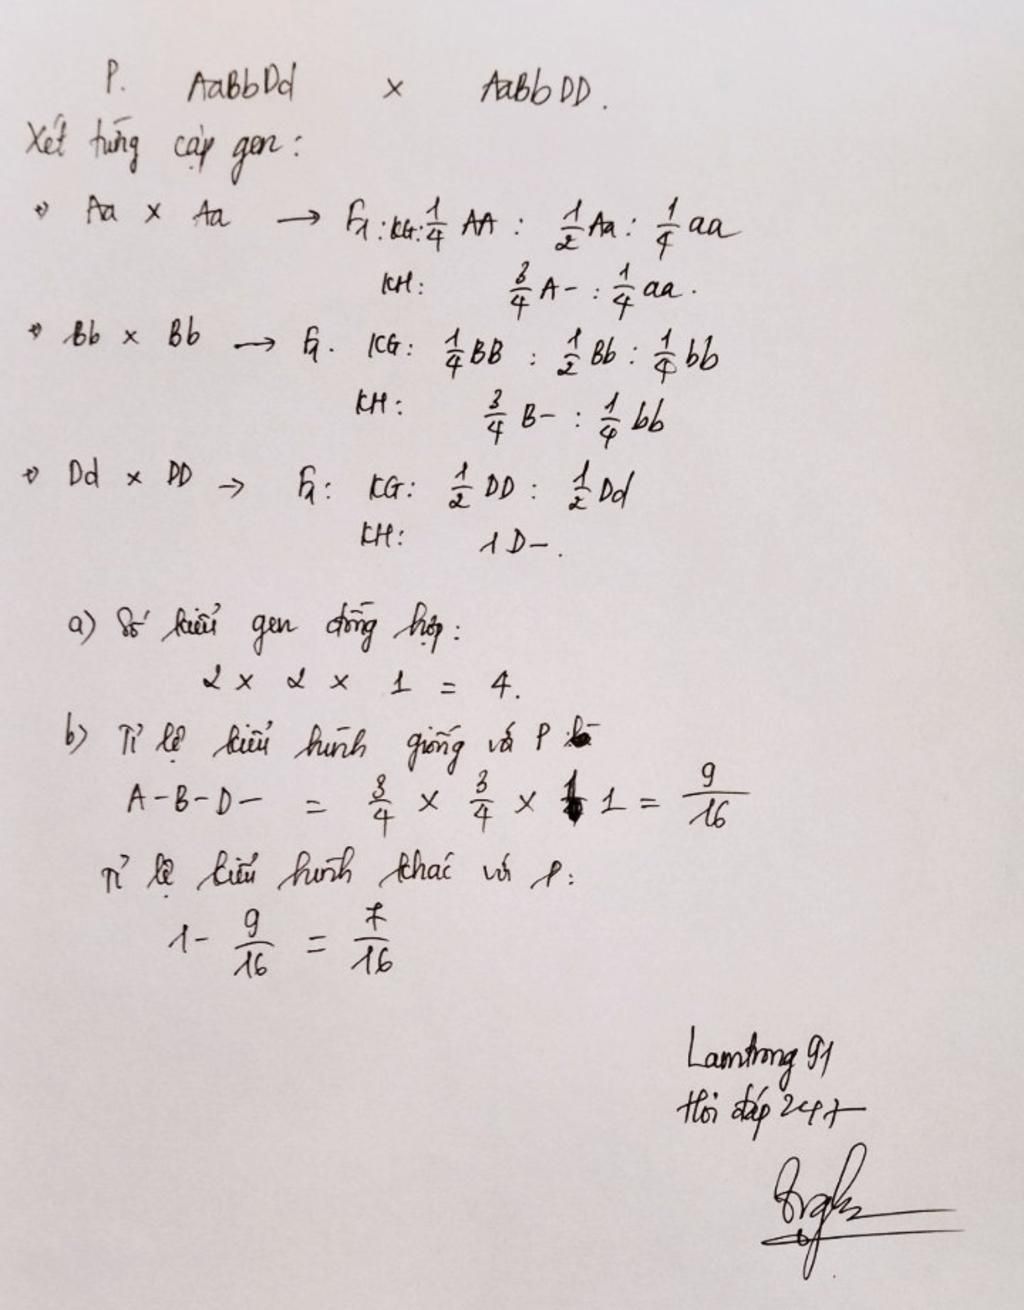 P. AaBbDd × AaBbDD.
Xét từng cặp gen:
Aa × Aa → F1: KG: 1/4 AA : 1/2 Aa : 1/4 aa
KH: 3/4 A- : 1/4 aa.
Bb × Bb → F1. KG: 1/4 BB : 1/2 Bb : 1/4 bb
KH: 3/4 B- : 1/4 bb
Dd × DD → F1: KG: 1/2 DD : 1/2 Dd
KH: 1 D-.
a) Số kiểu gen đồng hợp:
2 × 2 × 1 = 4.
b) Tỉ lệ kiểu hình giống với P
A-B-D- = 3/4 × 3/4 × 1 = 9/16
Tỉ lệ kiểu hình khác với P:
1 - 9/16 = 7/16
Lamtrong 91
Hỏi đáp 247